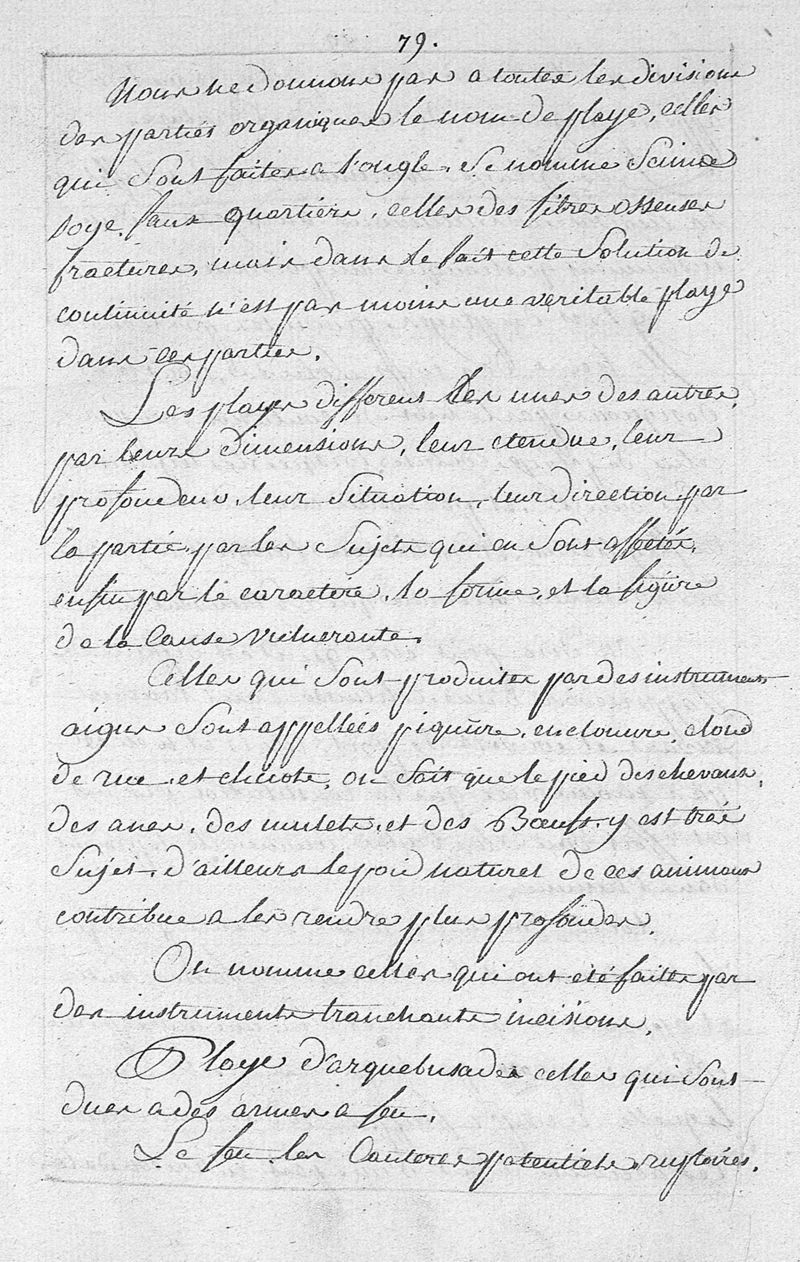 79.
Nous ne donnons pas a toutes les divisions
des parties organiques le nom de playe, celles
qui sont faites a l'ongle, se nomme Seime
soye, faux quartiers, celles des fibres osseuses
fractures, mais dans le fait cette solution de
continuité n'est pas moins une veritable playe
dans ces parties.
Les playes different les unes des autres,
par leurs dimensions, leur etendue, leur
profondeur, leur situation, leur direction par
la partie, par les sujets qui en sont affetés,
enfin par le caractére, la forme, et la figure
de la Cause vulnerante.
Celles qui sont produites par des instruments
aigus sont appellées piqûre, enclouure, cloud
de rue, et chicots, on sait que le pied des chevaux,
des anes, des mulets, et des Bœufs, y est trés
sujet, d'ailleurs le poid naturel de ces animaux
contribue a les rendre plus profondes.
On nomme celles qui ont été faites par
des instruments tranchants incisions.
Playe d'arquebusades celles qui sont
dues a des armes a feu.
Le feu, les Cauteres potentiels, ruptoires,